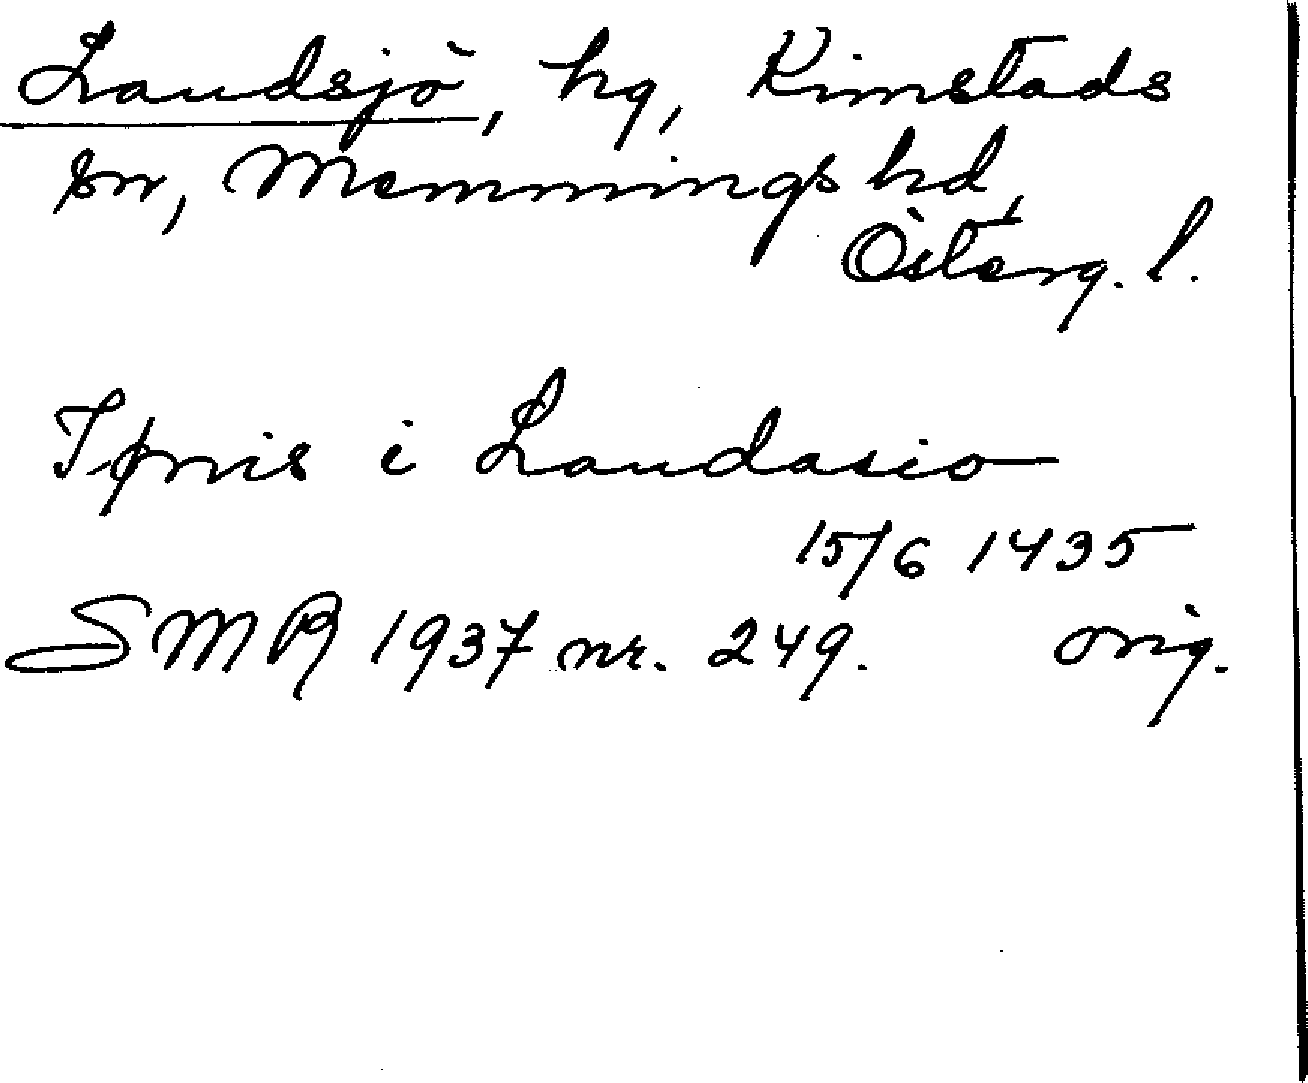 Landsjö, hg, Kimstads
sn, Memmings hd,
Österg. l.
i Landasio
15/6 1435
SMR 1937 nr. 249. orig.